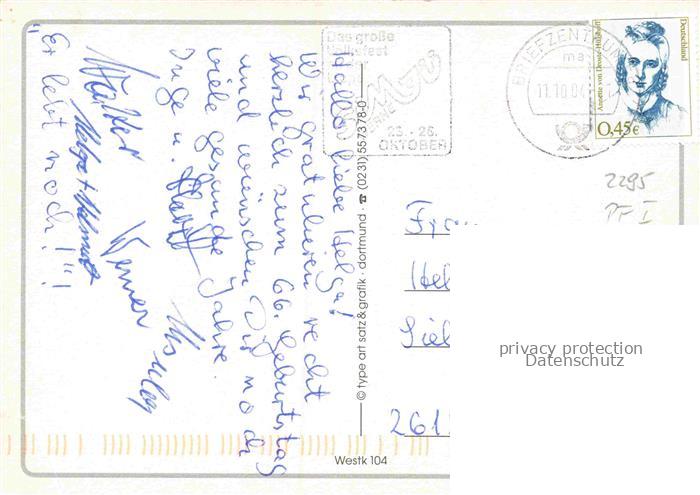 Hallo liebe Helga!
Wir gratulieren recht
herzlich zum 66. Geburtstag
und wünschen Dir noch
viele gesunde Jahre.
Inge u.
Walter
Helga + Helmut
Werner
"Er lebt noch!"!
Das große
Volksfest
25.-26.
OKTOBER
BRIEFZENTRUM
ma
11.10.04
Deutschland
Annette von Droste-Hülshoff
0,45€
2295
PF I
Hel
Siel
261
© type art satz & grafik · dortmund · ☎ (0231) 55 73 78-0
Westk 104
privacy protection
Datenschutz